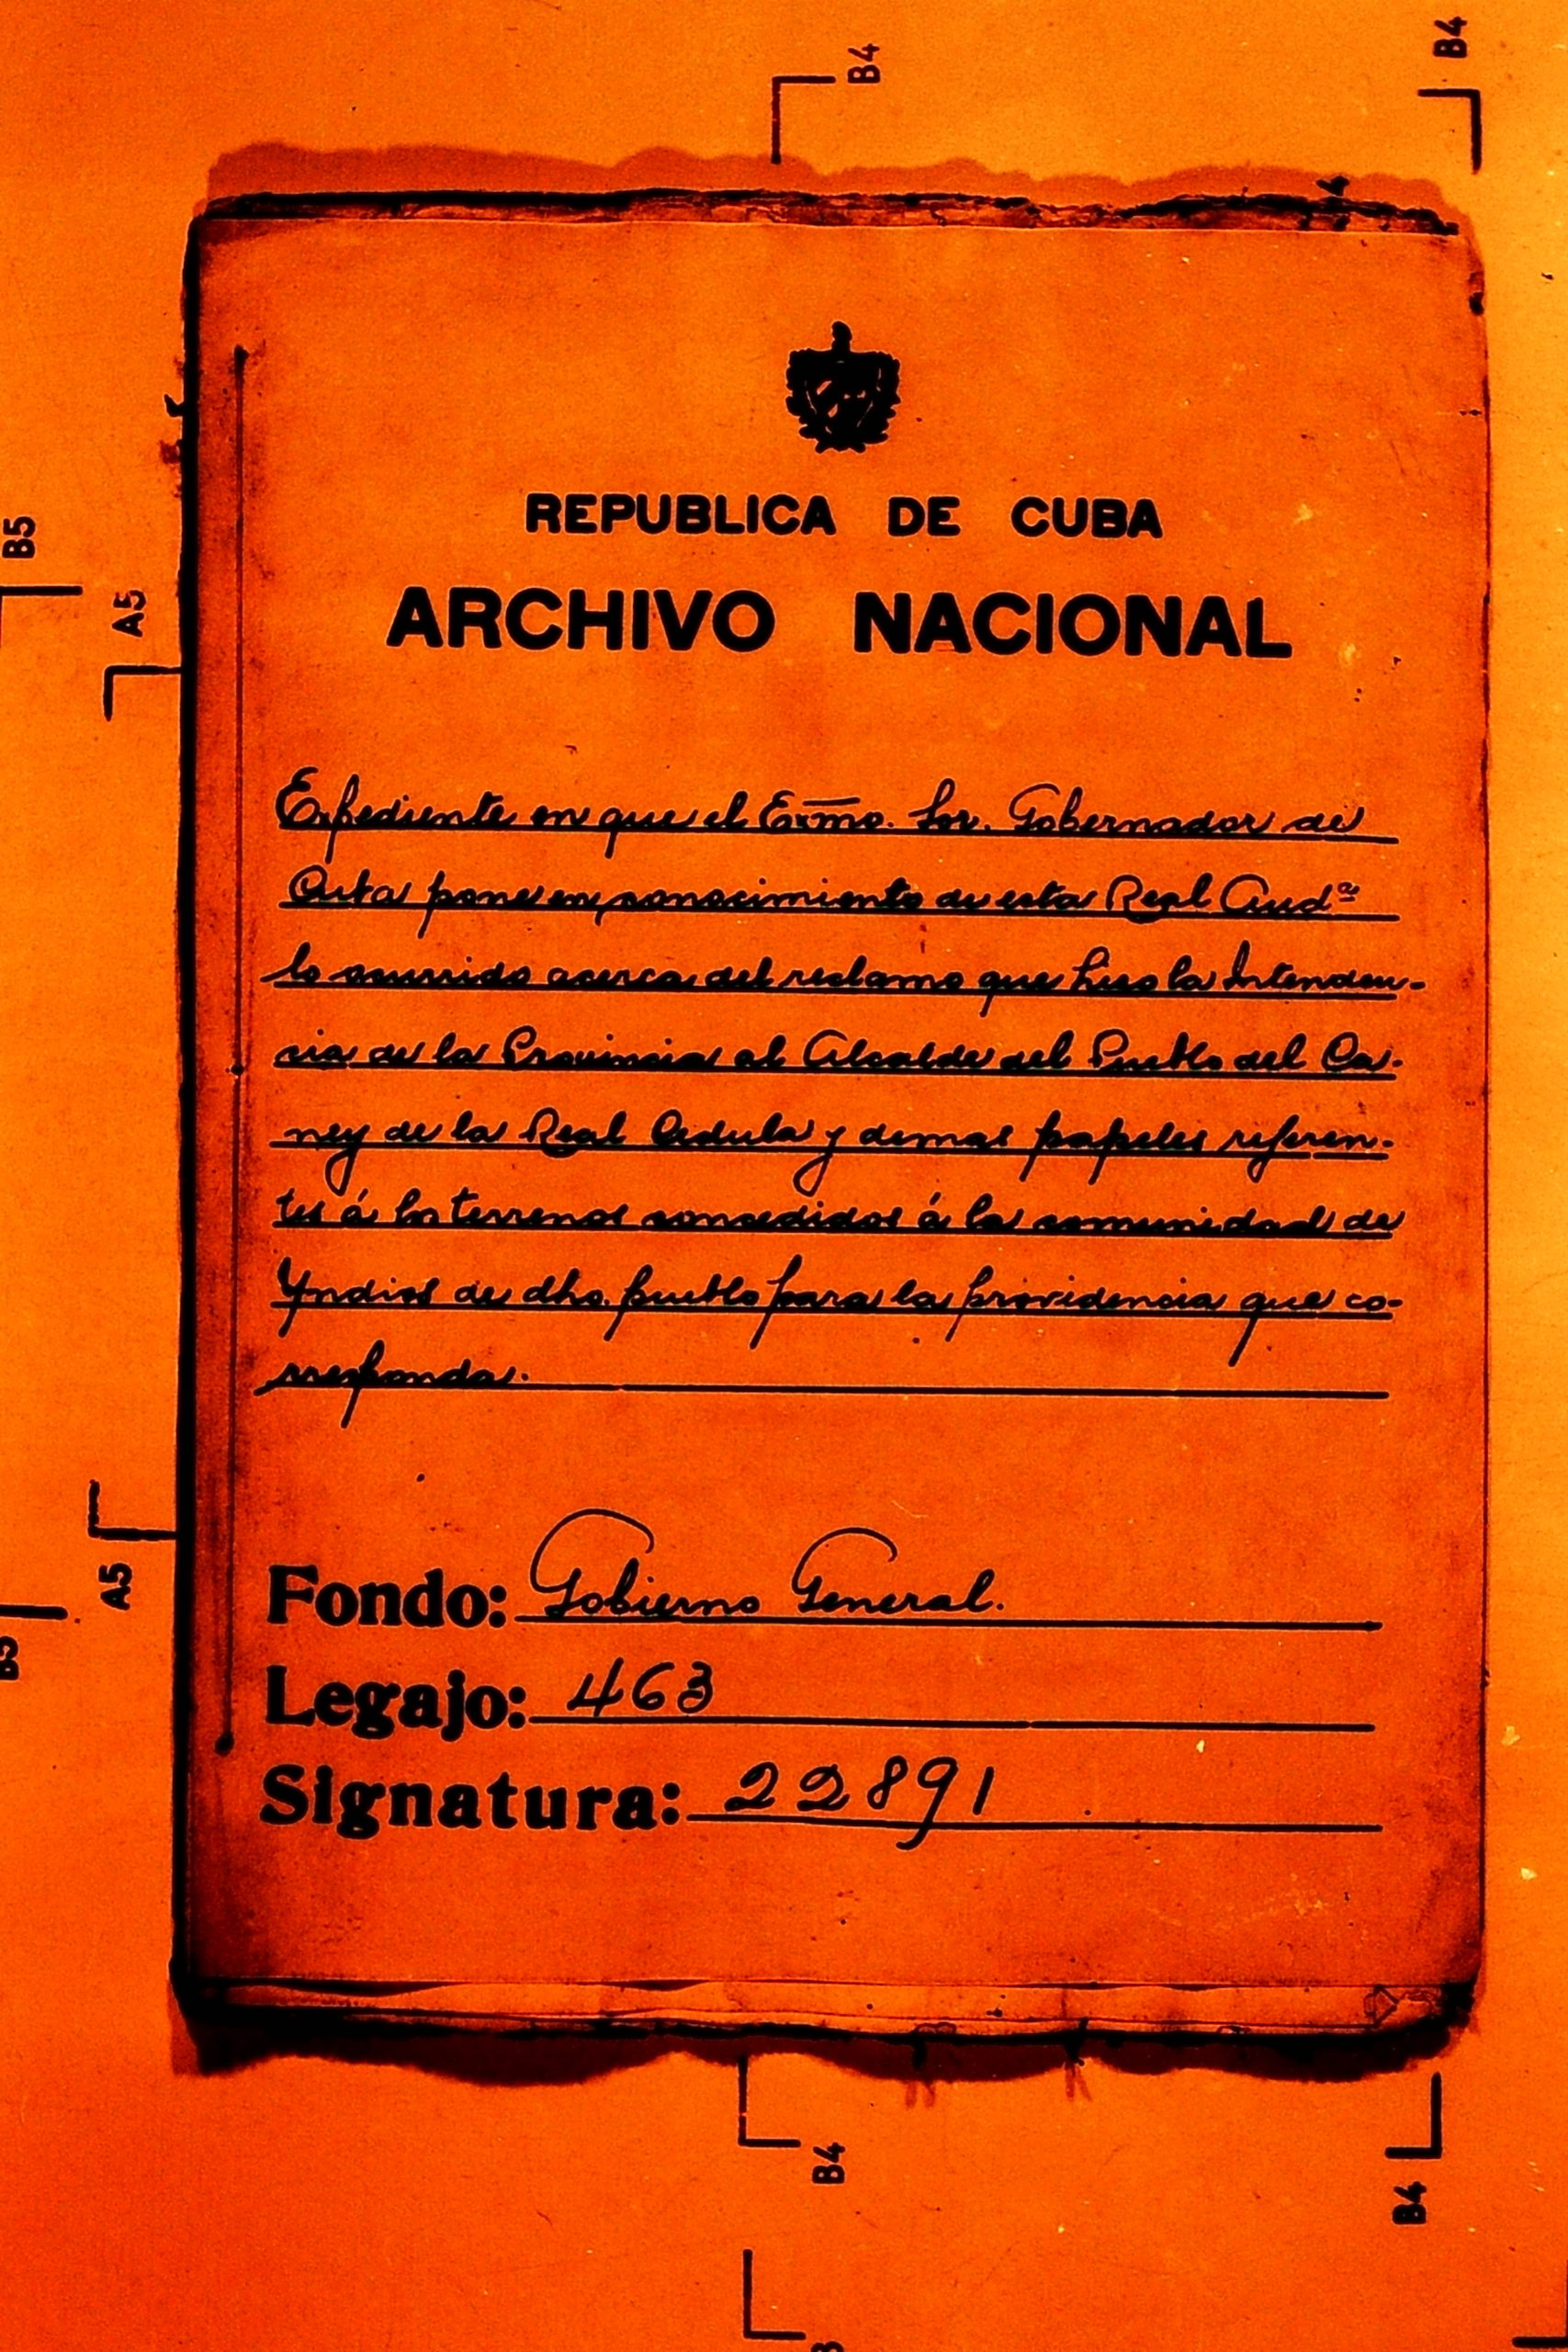 B4
B4
B5
A5
REPUBLICA DE CUBA
ARCHIVO NACIONAL
Expediente en que el Exmo. Sor. Gobernador de
Cuba pone en conocimiento de esta Real Audª
lo ocurrido acerca del reclamo que hiso la Intenden-
cia de la Provincia al Alcalde del Pueblo del Ca-
ney de la Real Cedula y demas papeles referen-
tes á los terrenos concedidos á la comunidad de
Yndios de dho. pueblo para la providencia que co-
rresponda.
Fondo: Gobierno General.
Legajo: 463
Signatura: 22891
A5
B5
B4
B4